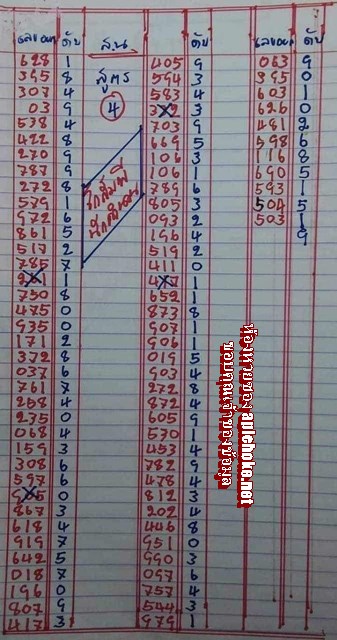 เลขออก ดับ
628 1
395 8
307 4
03 9
538 4
422 8
270 9
787 9
272 8
579 1
972 6
861 5
517 2
785 7
1
750 8
475 0
935 0
171 2
372 8
037 6
761 7
258 4
235 0
068 4
159 3
308 6
597 6
0
867 3
618 4
919 7
642 5
018 7
196 0
807 9
417 3
ส.น
สูตร
4
405 9
594 3
583 4
3
703 9
669 5
106 3
106 1
789 6
805 3
093 2
196 4
519 2
411 0
1
652 1
873 8
907 1
906 1
019 5
903 4
272 8
872 4
605 9
570 1
453 4
782 9
478 4
812 3
202 4
446 8
951 0
990 3
097 6
757 4
544 3
979 1
เลขออก ดับ
063 9
395 0
603 1
626 0
481 2
598 6
116 8
690 5
593 1
504 5
503 1
9
ห้องหวยซอง aplchoke.net
ขอบคุณเจ้าของข้อมูล